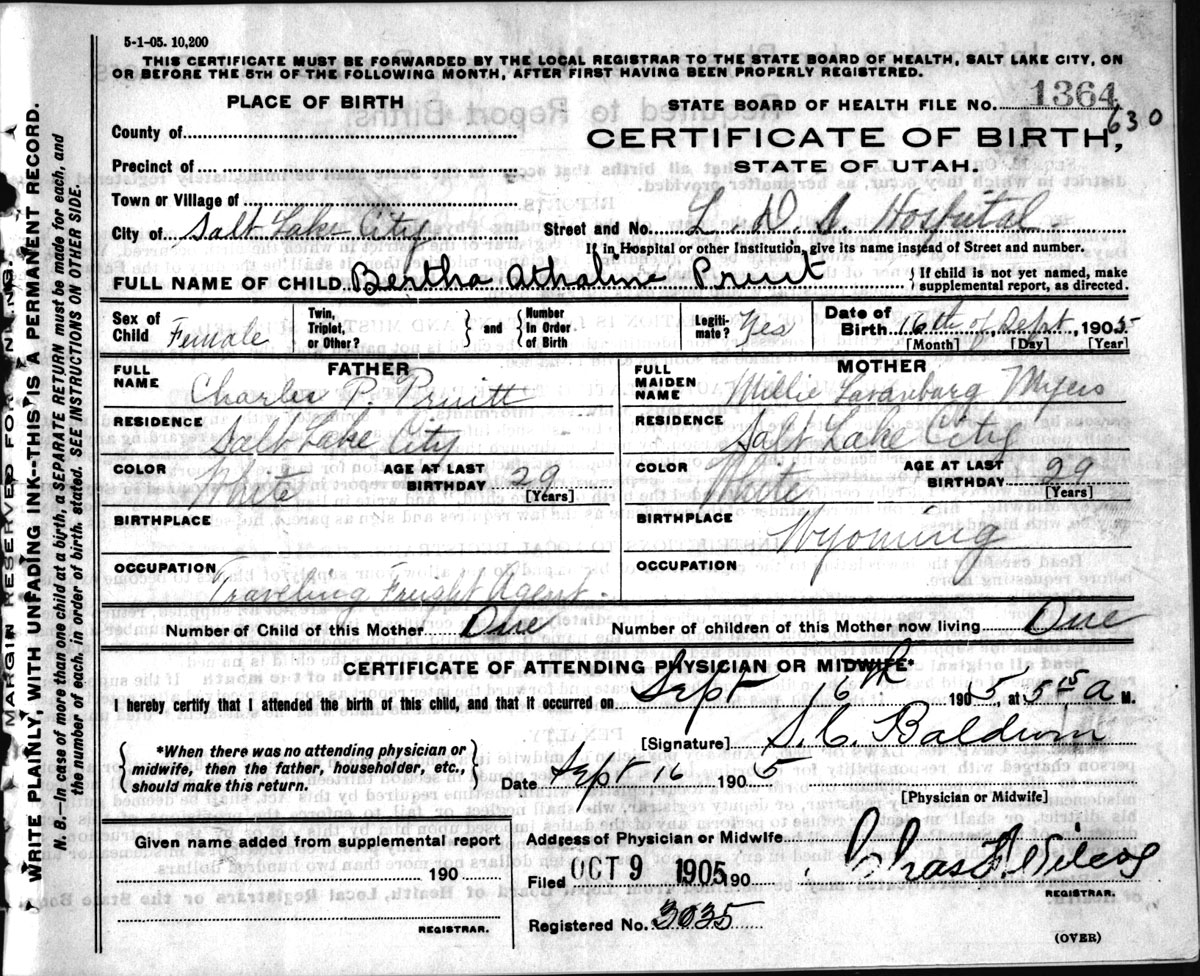 5-1-05. 10,200
THIS CERTIFICATE MUST BE FORWARDED BY THE LOCAL REGISTRAR TO THE STATE BOARD OF HEALTH, SALT LAKE CITY, ON
OR BEFORE THE 5TH OF THE FOLLOWING MONTH, AFTER FIRST HAVING BEEN PROPERLY REGISTERED.
PLACE OF BIRTH
STATE BOARD OF HEALTH FILE NO. 1364
630
County of
CERTIFICATE OF BIRTH,
Precinct of
STATE OF UTAH.
Town or Village of
City of Salt Lake City Street and No. L. D. S. Hospital
If in Hospital or other Institution, give its name instead of Street and number.
FULL NAME OF CHILD Bertha Athaline Pruit { If child is not yet named, make
supplemental report, as directed.
Sex of Child Female Twin, Triplet, or Other? } and { Number In Order of Birth Legiti- mate? Yes Date of Birth 16th of Sept, 1905
[Month] [Day] [Year]
FATHER
MOTHER
FULL NAME Charles P. Pruitt
FULL MAIDEN NAME Millie Myers
RESIDENCE Salt Lake City
RESIDENCE Salt Lake City
COLOR White AGE AT LAST BIRTHDAY 29 [Years]
COLOR White AGE AT LAST BIRTHDAY 29 [Years]
BIRTHPLACE
BIRTHPLACE Wyoming
OCCUPATION Traveling Freight Agent.
OCCUPATION
Number of Child of this Mother One Number of children of this Mother now living One
CERTIFICATE OF ATTENDING PHYSICIAN OR MIDWIFE*
I hereby certify that I attended the birth of this child, and that it occurred on Sept 16th 1905, at 5 15 a M.
{ *When there was no attending physician or
midwife, then the father, householder, etc.,
should make this return. }
[Signature] S. C. Baldwin
Date Sept 16 1905
[Physician or Midwife]
Given name added from supplemental report
190
REGISTRAR.
Address of Physician or Midwife
Filed OCT 9 1905 190
Chas
REGISTRAR.
Registered No. 3035
(OVER)
MARGIN RESERVED FOR
WRITE PLAINLY, WITH UNFADING INK--THIS IS A PERMANENT RECORD.
N. B.--In case of more than one child at a birth, a SEPARATE RETURN must be made for each, and
the number of each, in order of birth, stated. SEE INSTRUCTIONS ON OTHER SIDE.